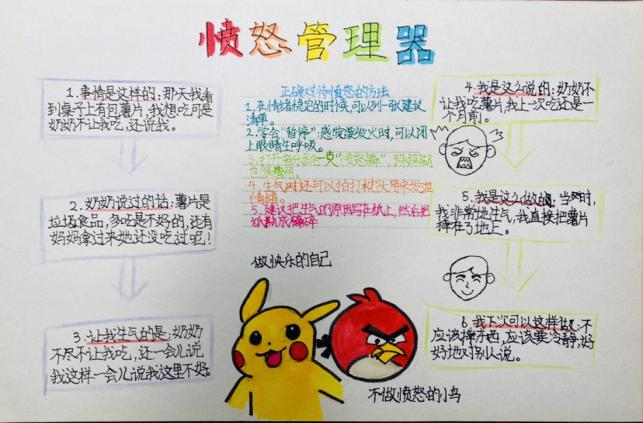 愤怒管理器
1.事情是这样的:那天我看
到桌子上有包薯片,我想吃可是
奶奶不让我吃,还说我。
2.奶奶说过的话:薯片是
垃圾食品,多吃是不好的,还有
妈妈拿过来她还没吃过呢!
3.让我生气的是:奶奶
不尽不让我吃,还一会儿说
我这样一会儿说我这里不好。
正确对待愤怒的方法
1.在情绪稳定的时候,可以列一张建议
清单。
2.学会“暂停”:感觉要发火时,可以闭
上眼睛生呼吸。
3.打开
4.生气时还可以拍打枕头用来发泄
情绪。
5.建议把生气的原因写在纸上,然后把
纸
做快乐的自己
不做愤怒的小鸟
4.我是这么说的:奶奶不
让我吃薯片,我上一次吃还是一
个月前。
5.我是这么做的:当时,
我非常地生气,我直接把薯片
摔在了地上。
6.我下次可以这样做:不
应该摔东西,应该要冷静,好
好地对别人说。